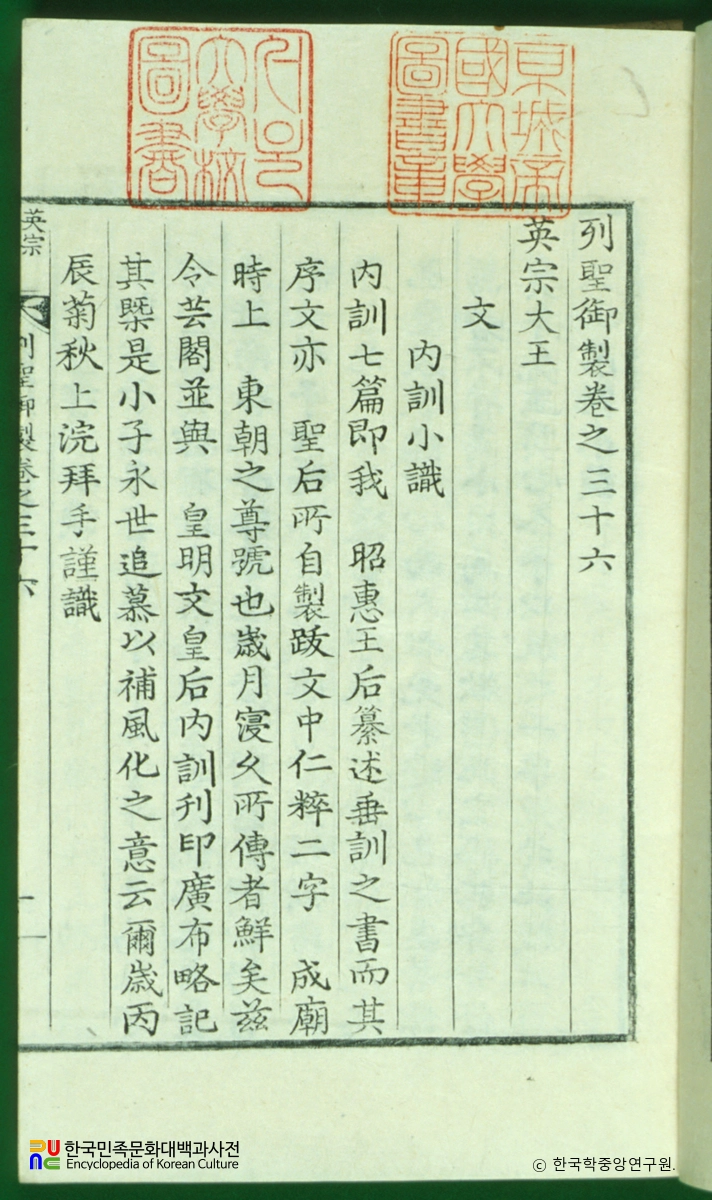 京城帝
國大學
圖書章
서울
大學校
圖書
列聖御製卷之三十六
英宗大王
文
內訓小識
內訓七篇即我 昭惠王后纂述垂訓之書而其
序文亦 聖后所自製跋文中仁粹二字 成廟
時上 東朝之尊號也歲月寖久所傳者鮮矣玆
令芸閣並與 皇明文皇后內訓刊印廣布略記
其槩是小子永世追慕以補風化之意云爾歲丙
辰菊秋上浣拜手謹識
英宗
列聖御製卷之三十六
一
한국민족문화대백과사전
Encyclopedia of Korean Culture
© 한국학중앙연구원.